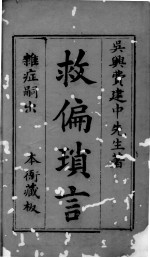 吳興費建中先生著
救偏瑣言
雜症嗣出
本衙藏板